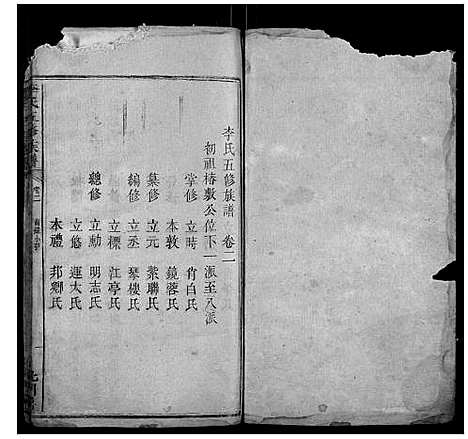 李氏五修族譜 卷二
初祖椿敷公位下一派至八派
掌修 立時 肯白氏
本敦 鏡蓉氏
纂修 立元 紫聯氏
編修 立丞 琴樓氏
立標 江亭氏
總修 立勳 明志氏
立 運太氏
本禮 邦卿氏
氏五修族譜 卷二